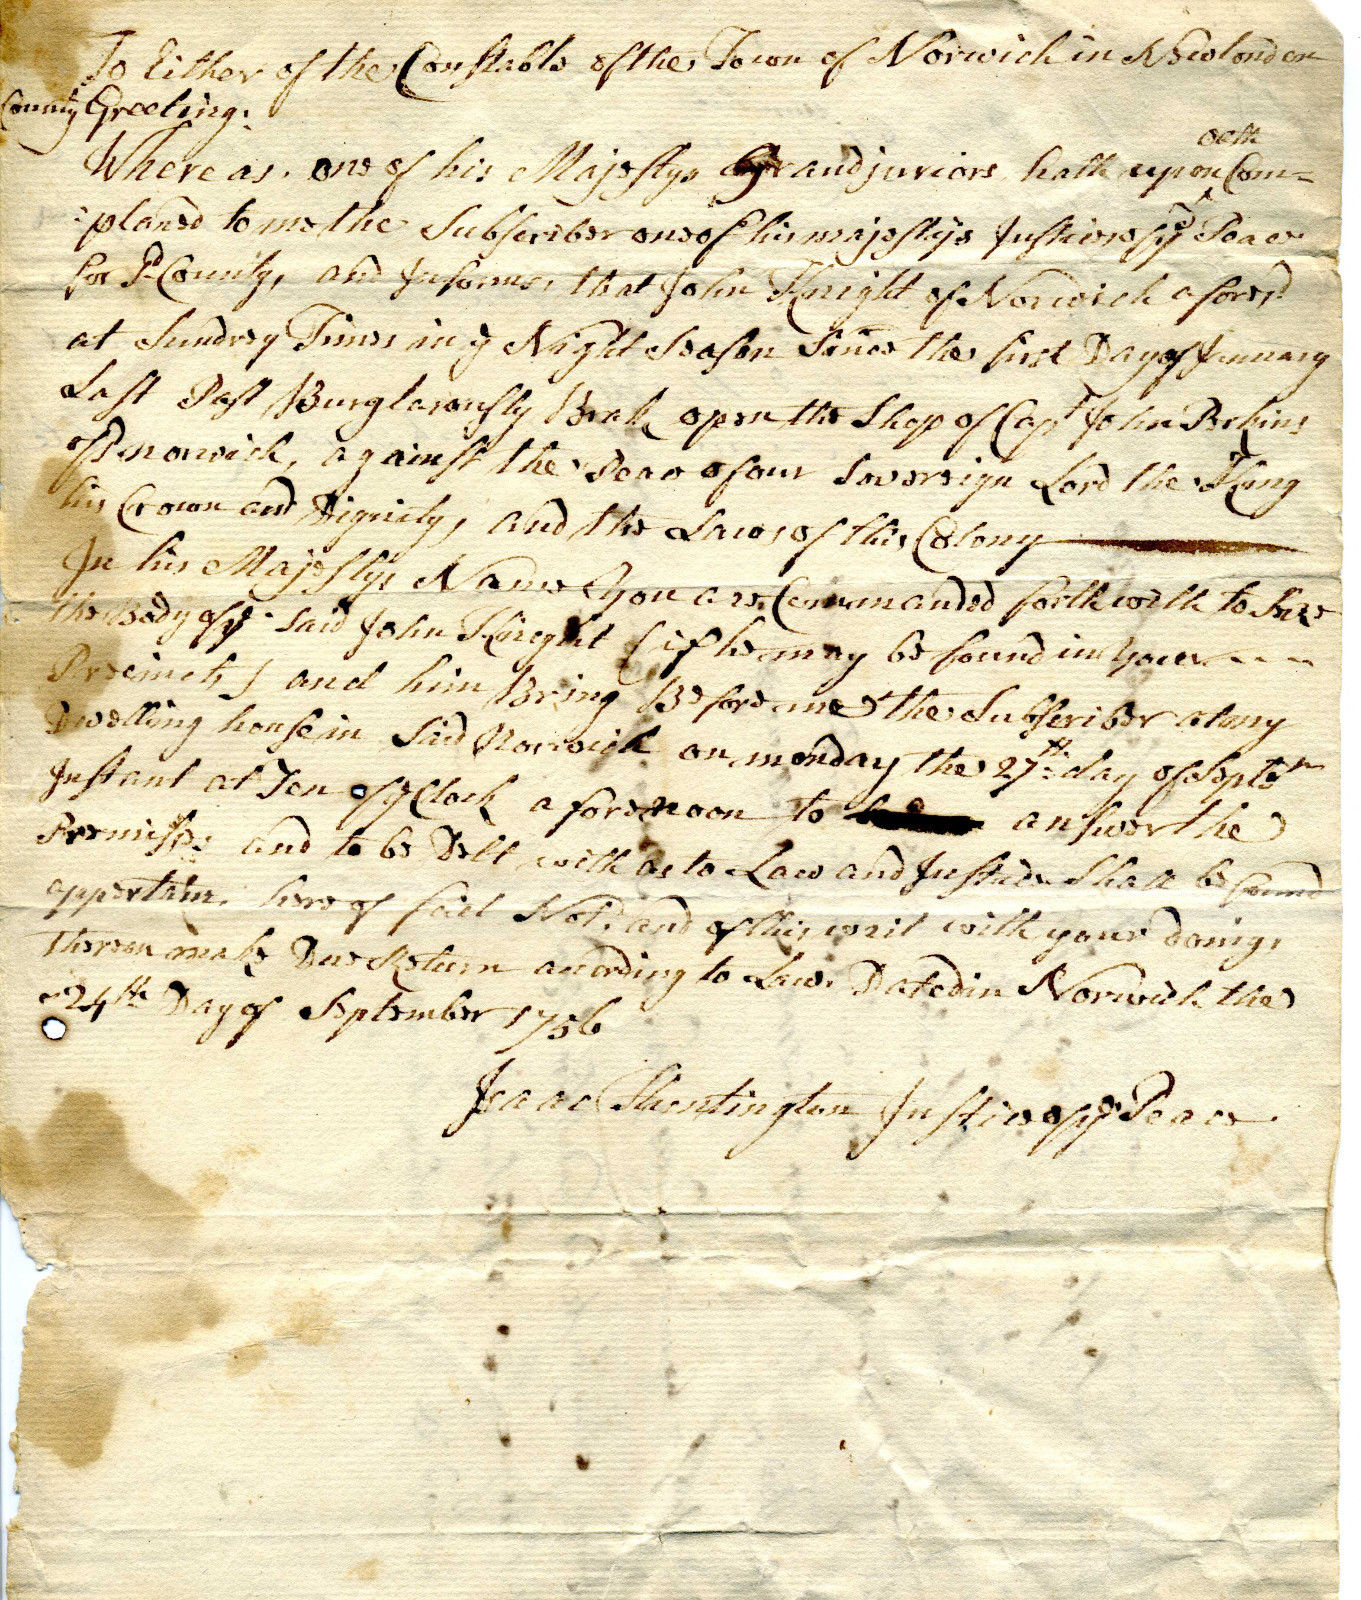 To Either of the Constabls of the Town of Norwich in Newlondon
County Greeting.
Whereas one of his Majestys Grandjuriors hath upon oath Com=
:planed to me the Subscriber one of his majestys Justices of ye Peace
for sd County, and Informs, that John Knight of Norwich aforesd
at Sundrey Times in ye Night Season Since the first Day of January
Last Past Burglarously Brak open the Shop of Capt John Perkins
of sd norwich, against the Peac of our Sovereign Lord the King
his Crown and Dignity, and the Laws of this Colony
In his Majestys Name You are Commanded forthwith to Seze
the Body of ye said John Knight (if he may be found in Your
Precincts) and him Bring Before me the Subscriber at my
Dwelling house in Said Norwich on monday the 27th day of Septer
Instant at Ten of ye Clock aforenoon to answer the
Premises and to be Delt with as to Law and Justice Shall be found
appertain. hereof fail Not, and of this writ with your doings
thereon make Due Return according to Law. Dated in Norwich the
24th Day of September 1756
Isaac Huntington Justice of ye Peace